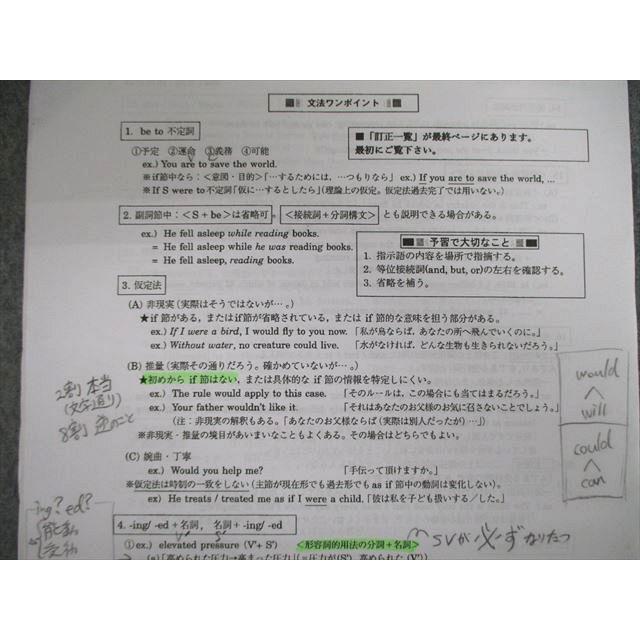 文法ワンポイント
1. be to 不定詞
①予定 ②運命 ③義務 ④可能
ex.) You are to save the world.
■「訂正一覧」が最終ページにあります。
最初にご覧下さい。
※if節中なら：<意図・目的>「…するためには、…つもりなら」 ex.) If you are to save the world, ...
※If S were to不定詞「仮に…するとしたら」(理論上の仮定。仮定法過去完了では用いない。)
2. 副詞節中：<S + be>は省略可。<接続詞+分詞構文>とも説明できる場合がある。
ex.) He fell asleep while reading books.
= He fell asleep while he was reading books.
= He fell asleep, reading books.
予習で大切なこと
1. 指示語の内容を場所で指摘する。
2. 等位接続詞(and, but, or)の左右を確認する。
3. 省略を補う。
3. 仮定法
(A) 非現実 (実際はそうではないが…。)
★if節がある，またはif節が省略されている，または if 節的な意味を担う部分がある。
ex.) If I were a bird, I would fly to you now. 「私が鳥ならば，あなたの所へ飛んでいくのに。」
ex.) Without water, no creature could live. 「水がなければ，どんな生物も生きられないだろう。」
(B) 推量 (実際その通りだろう。確かめていないが…。)
★初めから if 節はない，または具体的な if 節の情報を特定しにくい。
ex.) The rule would apply to this case. 「そのルールは，この場合にも当てはまるだろう。」
ex.) Your father wouldn't like it. 「それはあなたのお父様のお気に召さないことでしょう。」
(注：非現実の解釈もある。「あなたのお父様ならば (実際は別人だったが) …」)
※非現実・推量の境目があいまいなこともよくある。その場合はどちらでもよい。
(C) 婉曲・丁寧
ex.) Would you help me? 「手伝って頂けますか。」
※仮定法は時制の一致をしない (主節が現在形でも過去形でも as if 節中の動詞は変化しない)。
ex) He treats / treated me as if I were a child. 「彼は私を子ども扱いする／した。」
4. -ing/ -ed+名詞，名詞+-ing/ -ed
①ex.) elevated pressure (V'+ S') <形容詞的用法の分詞+名詞>
V' S'
SVが必ずなりたつ
2割 本当
(文字通り)
8割 逆のこと
would
will
could
can
-ing? ed?
能動
受動